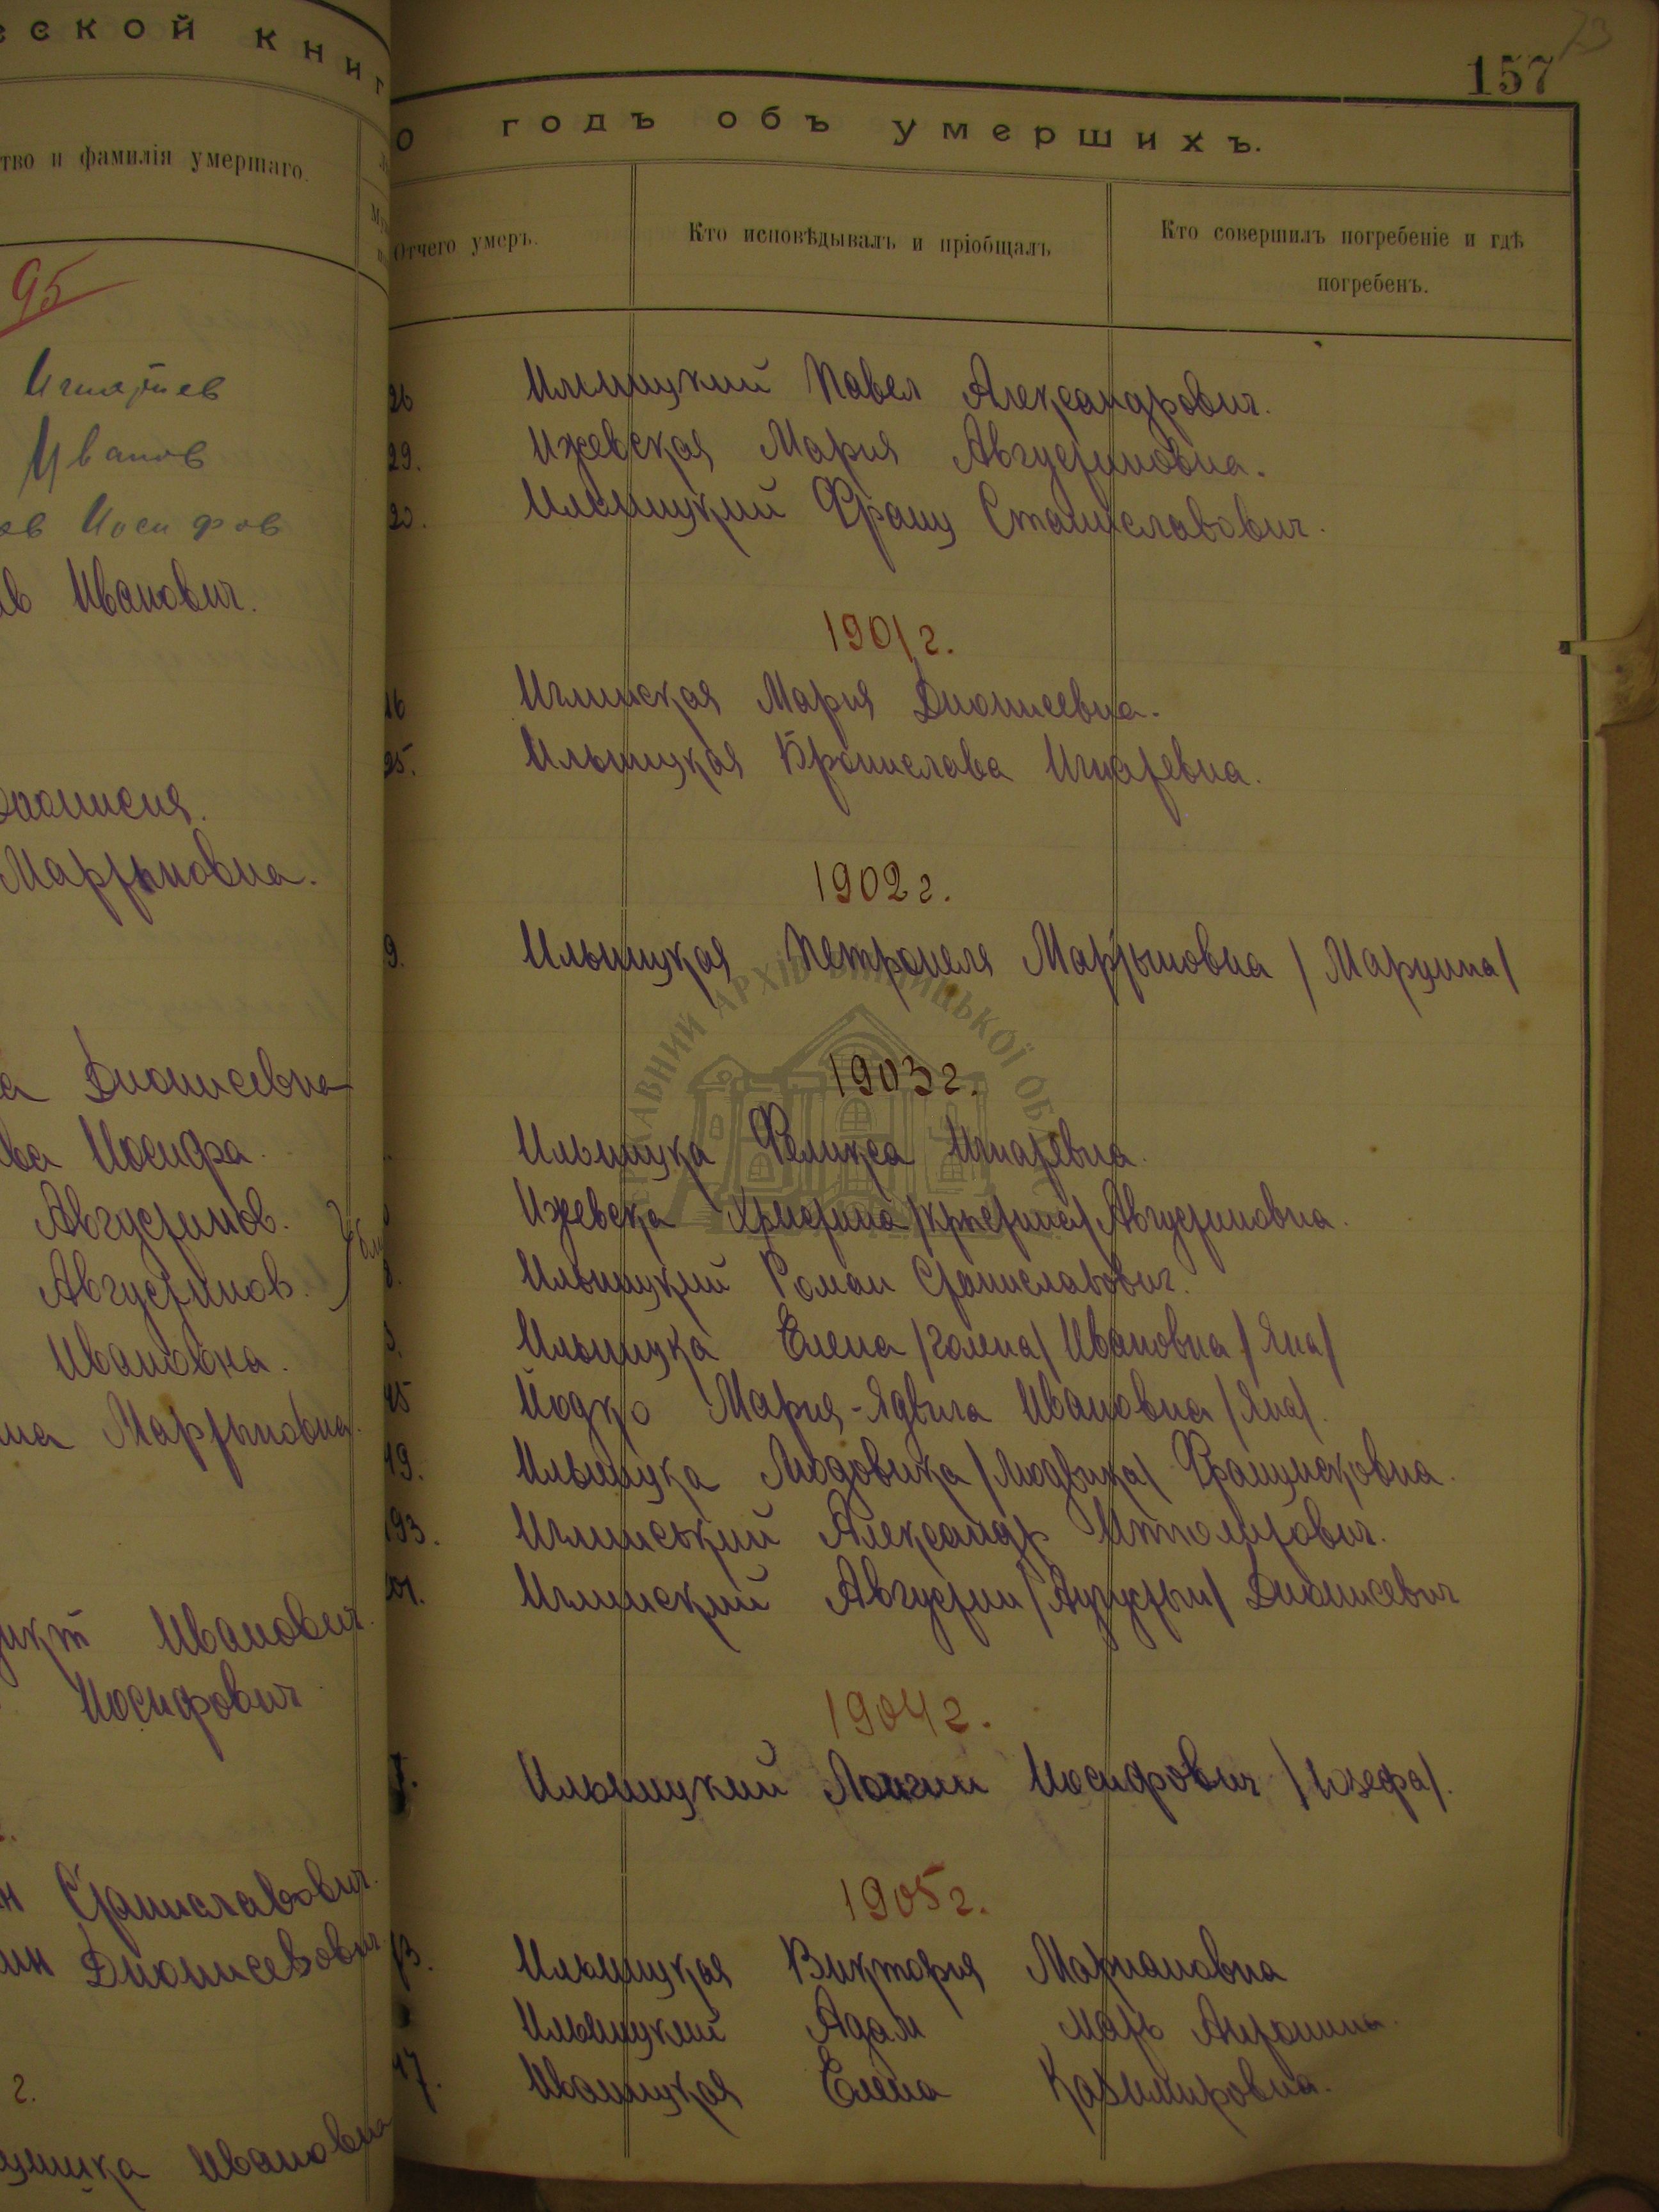 ской книг
тво и фамилія умершаго.
95
Игнатиев
Иванов
ов Иосифов
ав Иванович.
Дионисия.
Мартыновна.
а Дионисевна
ва Иосифа.
Августинов.
Августинов.
Ивановна.
на Мартыновна.
икт Иванович.
Иосифович
н Станиславович.
ин Дионисевович
г.
Ивановна
73
157
о годъ объ умершихъ.
Отчего умеръ.
Кто исповѣдывалъ и пріобщалъ
Кто совершилъ погребеніе и гдѣ
погребенъ.
26 Ильницкий Павел Александрович.
29. Ижевская Мария Августиновна.
20. Ильницкий Франц Станиславович.
1901 г.
16 Иглинская Мария Дионисевна.
25. Ильницкая Бронислава Игнатевна.
1902 г.
9. Ильницкая Петронеля Мартыновна /Марцина/
1903 г.
Ильницка Феликса Игнатевна.
Ижевска Христина /Крыстина/ Августиновна.
8. Ильницкий Роман Станиславович.
Ильницка Елена /Гелена/ Ивановна /Яна/
45 Йодко Мария-Ядвига Ивановна /Яна/.
49. Ильницка Людовика /Людвика/ Францисковна.
193. Иглинський Александр Иполитович.
201. Иглинский Августин /Аугустын/ Дионисевич
1904 г.
7. Ильницкий Лонгин Иосифович /Юзефа/.
1905 г.
13. Ильницкая Виктория Мариановна
Ильницкий Адам мать Антонина.
47. Иваницкая Елена Казимировна.
ДЕРЖАВНИЙ АРХІВ ВІННИЦЬКОЇ ОБЛ